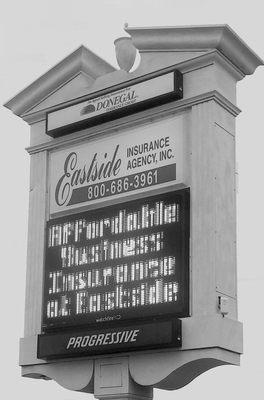 DONEGAL
Eastside
INSURANCE
AGENCY, INC.
800-686-3961
Affordable
Business
Insurance
at Eastside
PROGRESSIVE